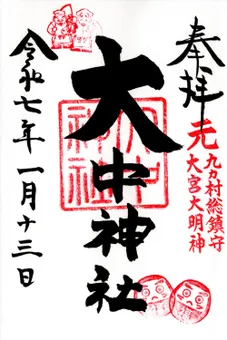 奉拝
元九カ村総鎮守
大宮大明神
大中神社
令和七年一月十三日